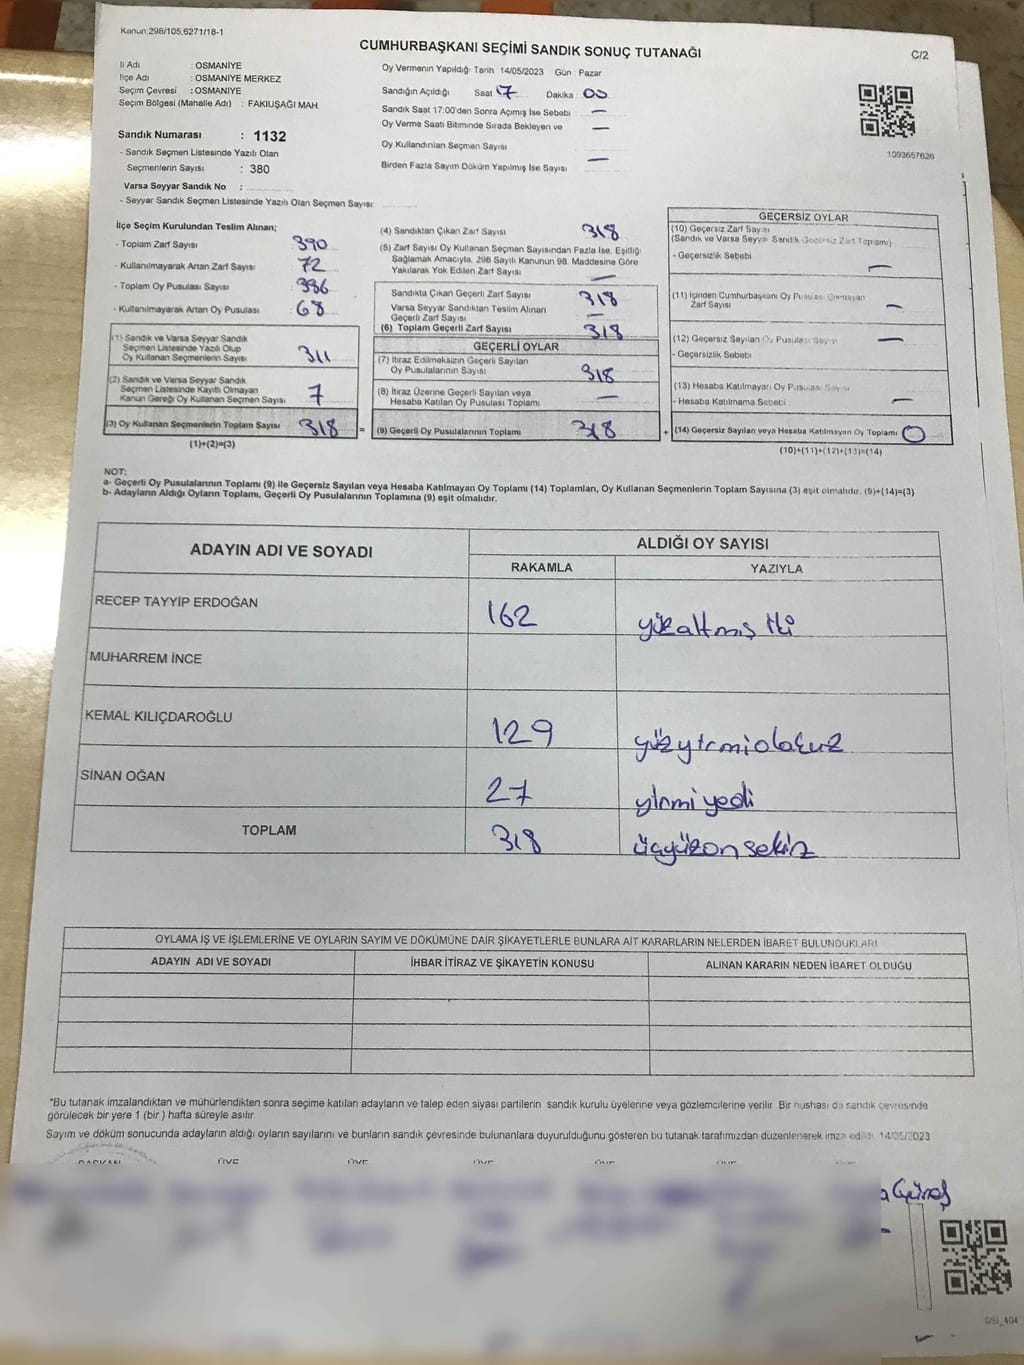 Kanun:298/105,6271/18-1
CUMHURBAŞKANI SEÇİMİ SANDIK SONUÇ TUTANAĞI
C/2
İl Adı : OSMANİYE
İlçe Adı : OSMANİYE MERKEZ
Seçim Çevresi : OSMANİYE
Seçim Bölgesi (Mahalle Adı) : FAKIUŞAĞI MAH.
Sandık Numarası : 1132
- Sandık Seçmen Listesinde Yazılı Olan
Seçmenlerin Sayısı : 380
Varsa Seyyar Sandık No :
- Seyyar Sandık Seçmen Listesinde Yazılı Olan Seçmen Sayısı:
Oy Vermenin Yapıldığı Tarih 14/05/2023 Gün : Pazar
Sandığın Açıldığı Saat 17 Dakika : 00
Sandık Saat 17:00'den Sonra Açımış İse Sebebi : —
Oy Verme Saati Bitiminde Sırada Bekleyen ve —
Oy Kullandırılan Seçmen Sayısı
Birden Fazla Sayım Döküm Yapılmış İse Sayısı —
1093657626
İlçe Seçim Kurulundan Teslim Alınan;
- Toplam Zarf Sayısı 390
- Kullanılmayarak Artan Zarf Sayısı 72
- Toplam Oy Pusulası Sayısı 386
- Kullanılmayarak Artan Oy Pusulası : 68
(1) Sandık ve Varsa Seyyar Sandık
Seçmen Listesinde Yazılı Olup
Oy Kullanan Seçmenlerin Sayısı 311
(2) Sandık ve Varsa Seyyar Sandık
Seçmen Listesinde Kayıtlı Olmayan
Kanun Gereği Oy Kullanan Seçmen Sayısı 7
(3) Oy Kullanan Seçmenlerin Toplam Sayısı 318 =
(1)+(2)=(3)
(4) Sandıktan Çıkan Zarf Sayısı 318
(5) Zarf Sayısı Oy Kullanan Seçmen Sayısından Fazla İse, Eşitliği
Sağlamak Amacıyla, 298 Sayılı Kanunun 98. Maddesine Göre
Yakılarak Yok Edilen Zarf Sayısı —
Sandıkta Çıkan Geçerli Zarf Sayısı 318
Varsa Seyyar Sandıktan Teslim Alınan
Geçerli Zarf Sayısı —
(6) Toplam Geçerli Zarf Sayısı 318
GEÇERLİ OYLAR
(7) İtiraz Edilmeksizin Geçerli Sayılan
Oy Pusulalarının Sayısı 318
(8) İtiraz Üzerine Geçerli Sayılan veya
Hesaba Katılan Oy Pusulası Toplamı —
(9) Geçerli Oy Pusulalarının Toplamı 318 +
GEÇERSİZ OYLAR
(10) Geçersiz Zarf Sayısı
(Sandık ve Varsa Seyyar Sandık Geçersiz Zarf Toplamı)
- Geçersizlik Sebebi —
(11) İçinden Cumhurbaşkanı Oy Pusulası Çıkmayan
Zarf Sayısı —
(12) Geçersiz Sayılan Oy Pusulası Sayısı —
- Geçersizlik Sebebi
(13) Hesaba Katılmayan Oy Pusulası Sayısı
- Hesaba Katılmama Sebebi —
(14) Geçersiz Sayılan veya Hesaba Katılmayan Oy Toplamı 0
(10)+(11)+(12)+(13)=(14)
NOT:
a- Geçerli Oy Pusulalarının Toplamı (9) ile Geçersiz Sayılan veya Hesaba Katılmayan Oy Toplamı (14) Toplamları, Oy Kullanan Seçmenlerin Toplam Sayısına (3) eşit olmalıdır. (9)+(14)=(3)
b- Adayların Aldığı Oyların Toplamı, Geçerli Oy Pusulalarının Toplamına (9) eşit olmalıdır.
ADAYIN ADI VE SOYADI
ALDIĞI OY SAYISI
RAKAMLA YAZIYLA
RECEP TAYYİP ERDOĞAN 162 yüzaltmış iki
MUHARREM İNCE
KEMAL KILIÇDAROĞLU 129 yüzyirmidokuz
SİNAN OĞAN 27 yirmi yedi
TOPLAM 318 üçyüzon sekiz
OYLAMA İŞ VE İŞLEMLERİNE VE OYLARIN SAYIM VE DÖKÜMÜNE DAİR ŞİKAYETLERLE BUNLARA AİT KARARLARIN NELERDEN İBARET BULUNDUKLARI
ADAYIN ADI VE SOYADI İHBAR İTİRAZ VE ŞİKAYETİN KONUSU ALINAN KARARIN NEDEN İBARET OLDUĞU
*Bu tutanak imzalandıktan ve mühürlendikten sonra seçime katılan adayların ve talep eden siyasi partilerin sandık kurulu üyelerine veya gözlemcilerine verilir. Bir nushası da sandık çevresinde
görülecek bir yere 1 (bir ) hafta süreyle asılır.
Sayım ve döküm sonucunda adayların aldığı oyların sayılarını ve bunların sandık çevresinde bulunanlara duyurulduğunu gösteren bu tutanak tarafımızdan düzenlenerek imza edildi. 14/05/2023
BAŞKAN ÜYE ÜYE ÜYE ÜYE ÜYE ÜYE
Güneş
SSİ_404